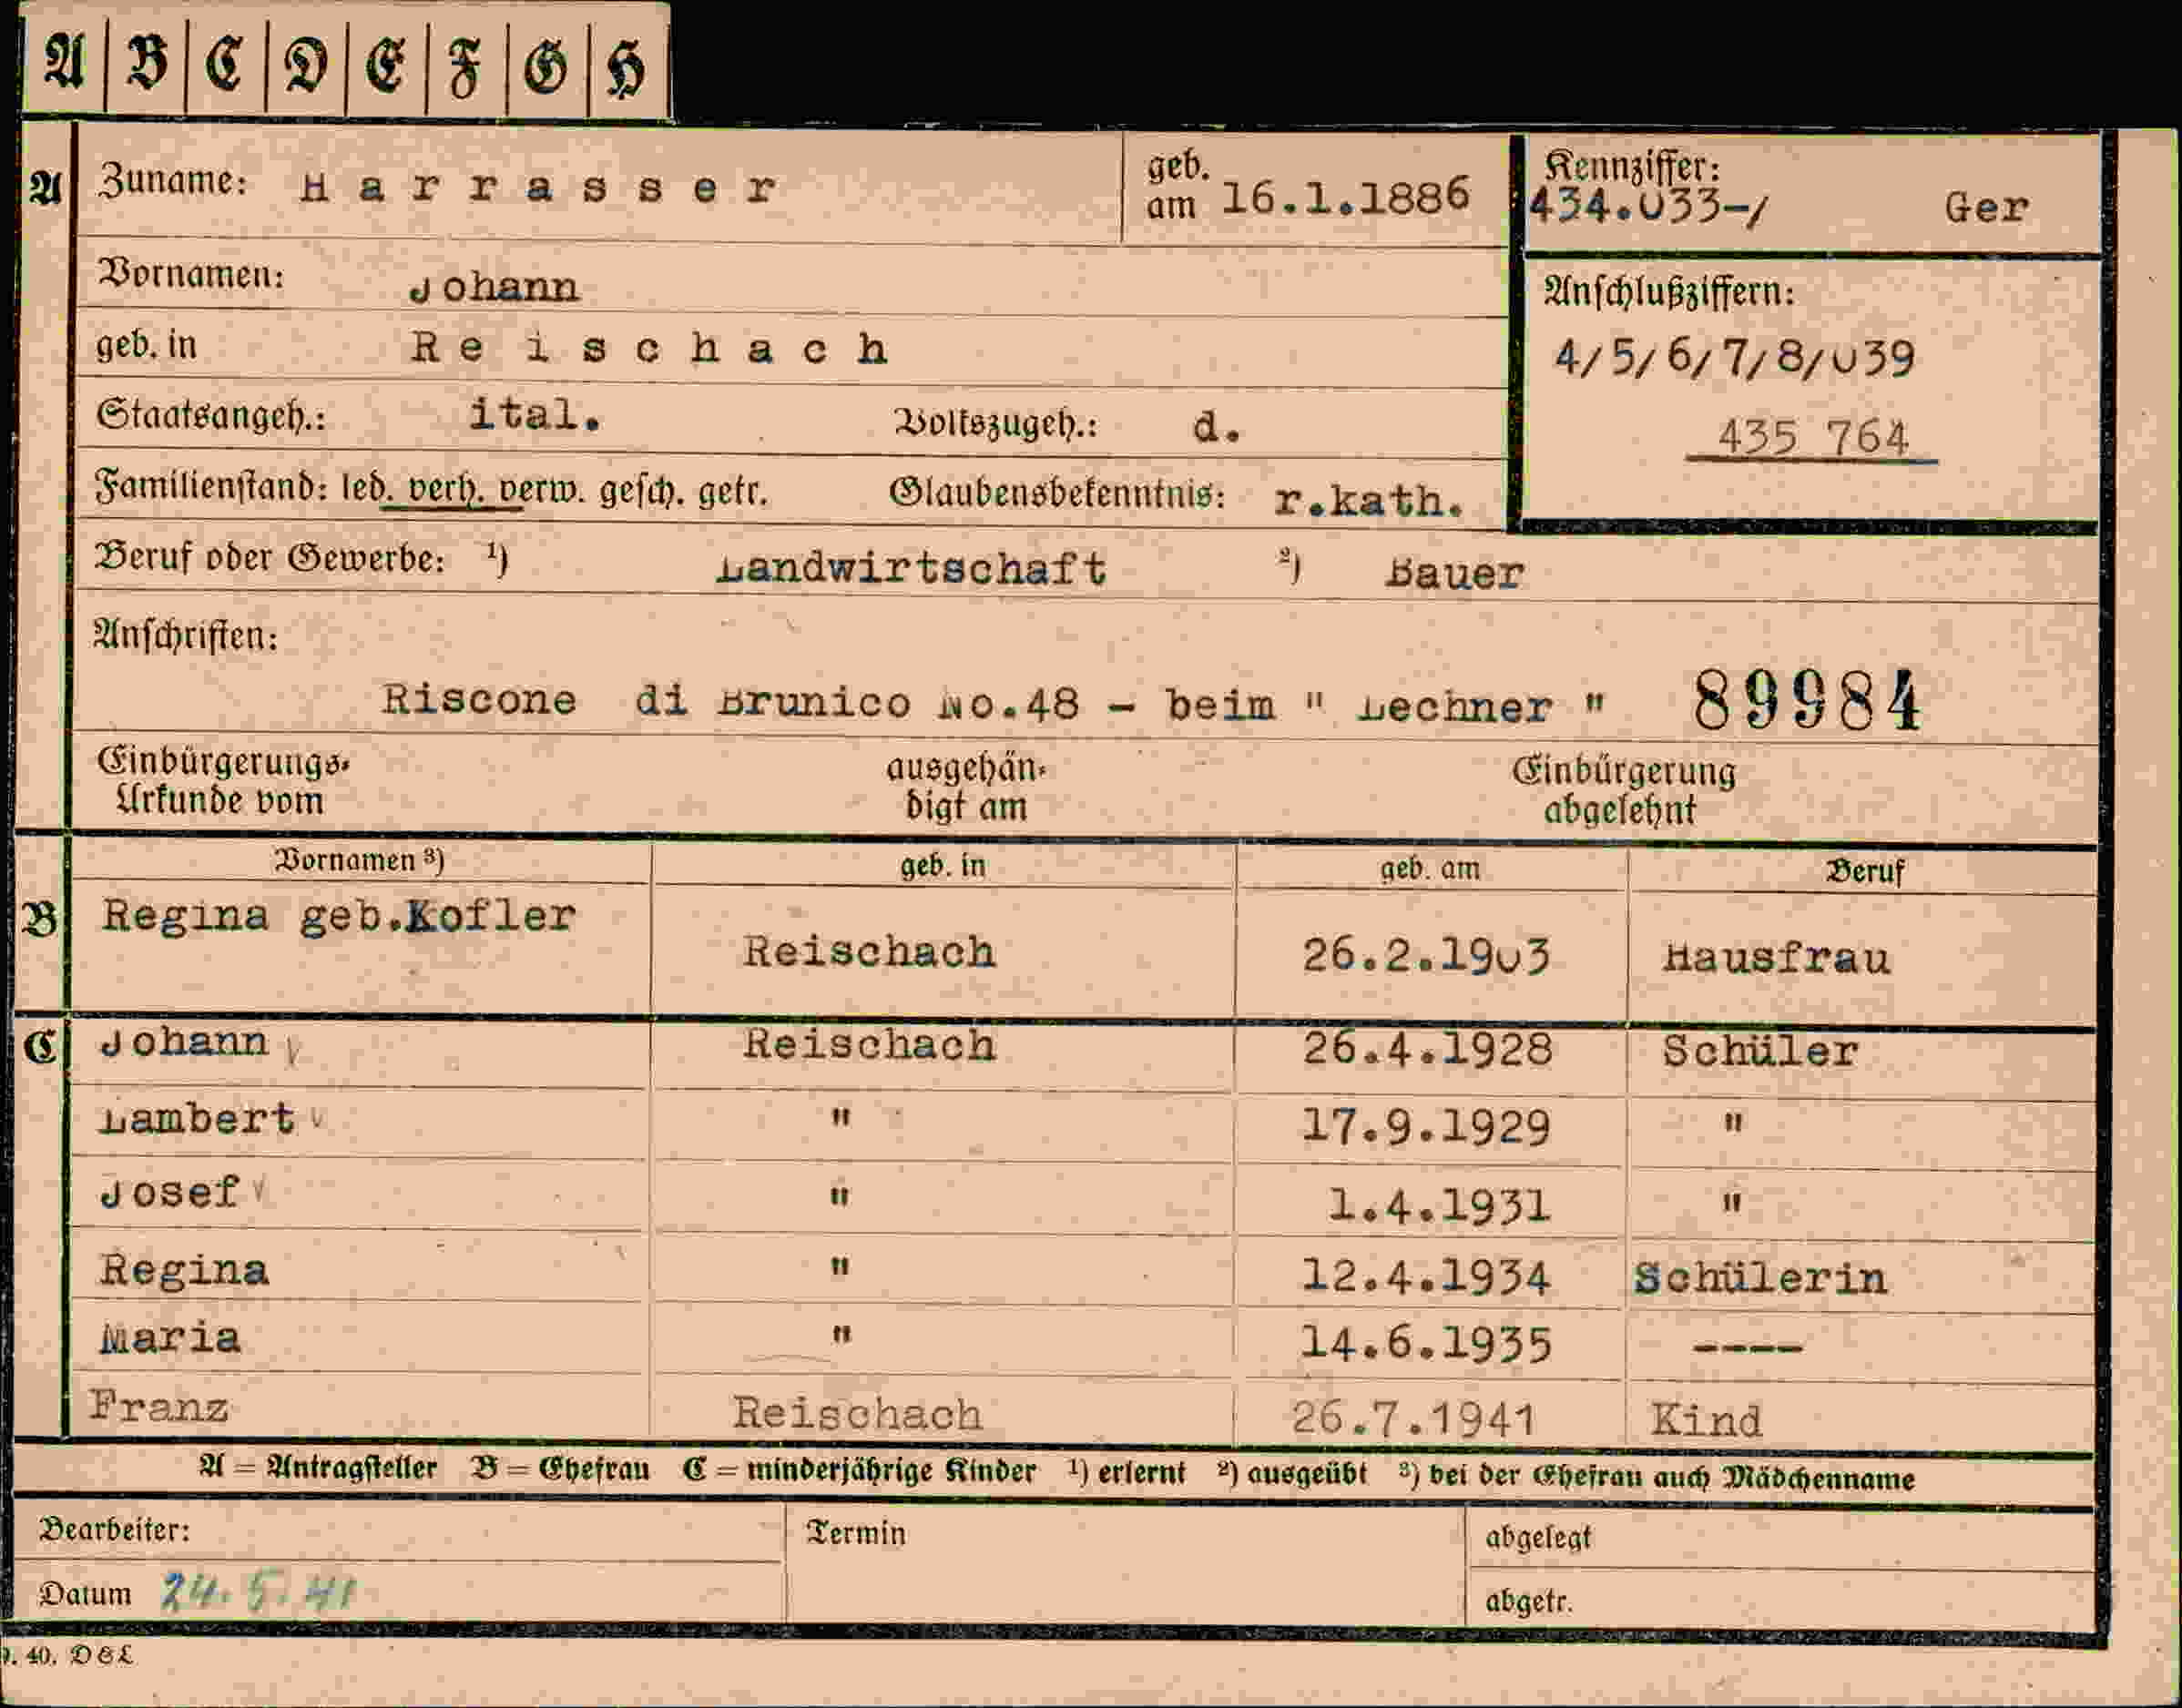 A B C D E F G H
A Zuname: Harrasser geb. am 16.1.1886 Kennziffer: 434.033-/ Ger
Vornamen: Johann Anschlußziffern:
geb. in Reischach 4/5/6/7/8/039
Staatsangeh.: ital. Volkszugeh.: d. 435 764
Familienstand: led. verh. verw. gesch. getr. Glaubensbekenntnis: r.kath.
Beruf oder Gewerbe: ¹) Landwirtschaft ²) Bauer
Anschriften:
Riscone di Brunico No.48 - beim " Lechner " 89984
Einbürgerungs- ausgehän- Einbürgerung
Urkunde vom digt am abgelehnt
Vornamen ³) geb. in geb. am Beruf
B Regina geb.Kofler Reischach 26.2.1903 Hausfrau
C Johann Reischach 26.4.1928 Schüler
Lambert " 17.9.1929 "
Josef " 1.4.1931 "
Regina " 12.4.1934 Schülerin
Maria " 14.6.1935 ----
Franz Reischach 26.7.1941 Kind
A = Antragsteller B = Ehefrau C = minderjährige Kinder ¹) erlernt ²) ausgeübt ³) bei der Ehefrau auch Mädchenname
Bearbeiter: Termin abgelegt
Datum 24.5.41 abgetr.
40. D&L